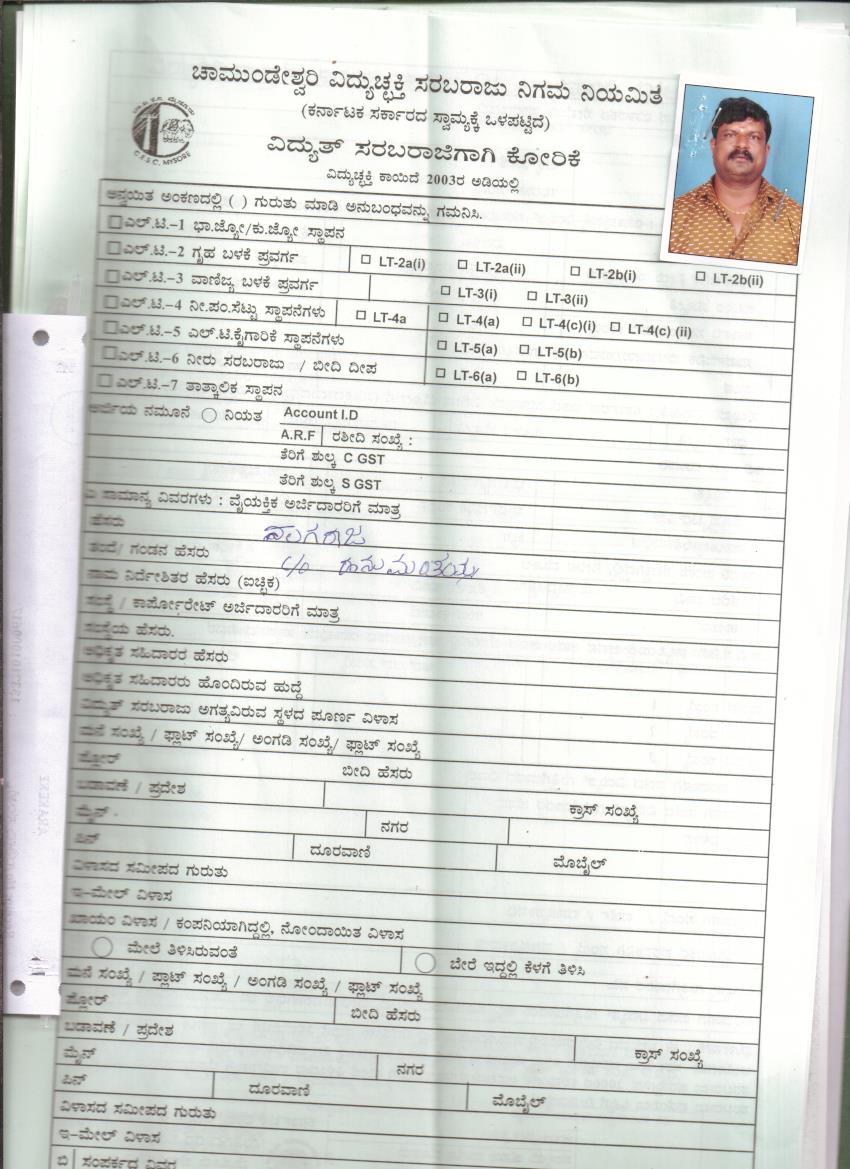 ಚಾಮುಂಡೇಶ್ವರಿ ವಿದ್ಯುಚ್ಛಕ್ತಿ ಸರಬರಾಜು ನಿಗಮ ನಿಯಮಿತ
(ಕರ್ನಾಟಕ ಸರ್ಕಾರದ ಸ್ವಾಮ್ಯಕ್ಕೆ ಒಳಪಟ್ಟಿದೆ)
C.E.S.C, MYSORE
ವಿದ್ಯುತ್ ಸರಬರಾಜಿಗಾಗಿ ಕೋರಿಕೆ
ವಿದ್ಯುಚ್ಛಕ್ತಿ ಕಾಯಿದೆ 2003ರ ಅಡಿಯಲ್ಲಿ
ಅನ್ವಯಿತ ಅಂಕಣದಲ್ಲಿ ( ) ಗುರುತು ಮಾಡಿ ಅನುಬಂಧವನ್ನು ಗಮನಿಸಿ.
ಎಲ್.ಟಿ.–1 ಭಾ.ಜ್ಯೋ/ಕು.ಜ್ಯೋ ಸ್ಥಾಪನ
ಎಲ್.ಟಿ.–2 ಗೃಹ ಬಳಕೆ ಪ್ರವರ್ಗ LT-2a(i) LT-2a(ii) LT-2b(i) LT-2b(ii)
ಎಲ್.ಟಿ.–3 ವಾಣಿಜ್ಯ ಬಳಕೆ ಪ್ರವರ್ಗ LT-3(i) LT-3(ii)
ಎಲ್.ಟಿ.–4 ನೀ.ಪಂ.ಸೆಟ್ಟು ಸ್ಥಾಪನೆಗಳು LT-4a LT-4(a) LT-4(c)(i) LT-4(c) (ii)
ಎಲ್.ಟಿ.–5 ಎಲ್.ಟಿ.ಕೈಗಾರಿಕೆ ಸ್ಥಾಪನೆಗಳು LT-5(a) LT-5(b)
ಎಲ್.ಟಿ.–6 ನೀರು ಸರಬರಾಜು / ಬೀದಿ ದೀಪ LT-6(a) LT-6(b)
ಎಲ್.ಟಿ.–7 ತಾತ್ಕಾಲಿಕ ಸ್ಥಾಪನ
ಅರ್ಜಿಯ ನಮೂನೆ ನಿಯತ Account I.D
A.R.F ರಶೀದಿ ಸಂಖ್ಯೆ :
ತೆರಿಗೆ ಶುಲ್ಕ C GST
ತೆರಿಗೆ ಶುಲ್ಕ S GST
ಎ ಸಾಮಾನ್ಯ ವಿವರಗಳು : ವೈಯಕ್ತಿಕ ಅರ್ಜಿದಾರರಿಗೆ ಮಾತ್ರ
ಹೆಸರು
ತಂದೆ/ ಗಂಡನ ಹೆಸರು C/o ಹನುಮಂತಯ್ಯ
ನಾಮ ನಿರ್ದೇಶಿತರ ಹೆಸರು (ಐಚ್ಛಿಕ)
ಸಂಸ್ಥೆ / ಕಾರ್ಪೋರೇಟ್ ಅರ್ಜಿದಾರರಿಗೆ ಮಾತ್ರ
ಸಂಸ್ಥೆಯ ಹೆಸರು.
ಅಧಿಕೃತ ಸಹಿದಾರರ ಹೆಸರು
ಅಧಿಕೃತ ಸಹಿದಾರರು ಹೊಂದಿರುವ ಹುದ್ದೆ
ವಿದ್ಯುತ್ ಸರಬರಾಜು ಅಗತ್ಯವಿರುವ ಸ್ಥಳದ ಪೂರ್ಣ ವಿಳಾಸ
ಮನೆ ಸಂಖ್ಯೆ / ಫ್ಲಾಟ್ ಸಂಖ್ಯೆ/ ಅಂಗಡಿ ಸಂಖ್ಯೆ/ ಫ್ಲಾಟ್ ಸಂಖ್ಯೆ
ಫ್ಲೋರ್ ಬೀದಿ ಹೆಸರು
ಬಡಾವಣೆ / ಪ್ರದೇಶ ಕ್ರಾಸ್ ಸಂಖ್ಯೆ
ಮೈನ್ ನಗರ
ಪಿನ್ ದೂರವಾಣಿ ಮೊಬೈಲ್
ವಿಳಾಸದ ಸಮೀಪದ ಗುರುತು
ಇ–ಮೇಲ್ ವಿಳಾಸ
ಖಾಯಂ ವಿಳಾಸ / ಕಂಪನಿಯಾಗಿದ್ದಲ್ಲಿ, ನೋಂದಾಯಿತ ವಿಳಾಸ
ಮೇಲೆ ತಿಳಿಸಿರುವಂತೆ ಬೇರೆ ಇದ್ದಲ್ಲಿ ಕೆಳಗೆ ತಿಳಿಸಿ
ಮನೆ ಸಂಖ್ಯೆ / ಪ್ಲಾಟ್ ಸಂಖ್ಯೆ / ಅಂಗಡಿ ಸಂಖ್ಯೆ / ಫ್ಲಾಟ್ ಸಂಖ್ಯೆ
ಫ್ಲೋರ್ ಬೀದಿ ಹೆಸರು
ಬಡಾವಣೆ / ಪ್ರದೇಶ ಕ್ರಾಸ್ ಸಂಖ್ಯೆ
ಮೈನ್ ನಗರ
ಪಿನ್ ದೂರವಾಣಿ ಮೊಬೈಲ್
ವಿಳಾಸದ ಸಮೀಪದ ಗುರುತು
ಇ–ಮೇಲ್ ವಿಳಾಸ
ಬಿ ಸಂಪರ್ಕದ ವಿವರ